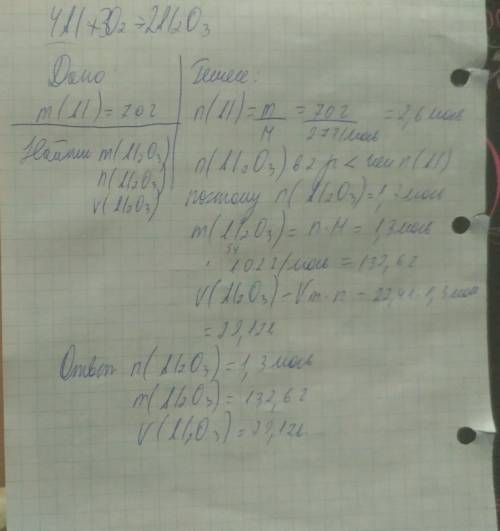 4Al+3O2=2Al2O3
Дано:
m(Al)=70г
Найти m(Al2O3)
n(Al2O3)
V(Al2O3)
Решение:
n(Al)=m/M=70г/27г/моль=2,6моль
n(Al2O3) в 2 р < чем n(Al)
поэтому n(Al2O3)=1,3моль
m(Al2O3)=n·M=1,3моль
·102г/моль=132,6г
V(Al2O3)=Vm·n=22,4л·1,3моль
=29,12л
Ответ n(Al2O3)=1,3моль
m(Al2O3)=132,6г
V(Al2O3)=29,12л